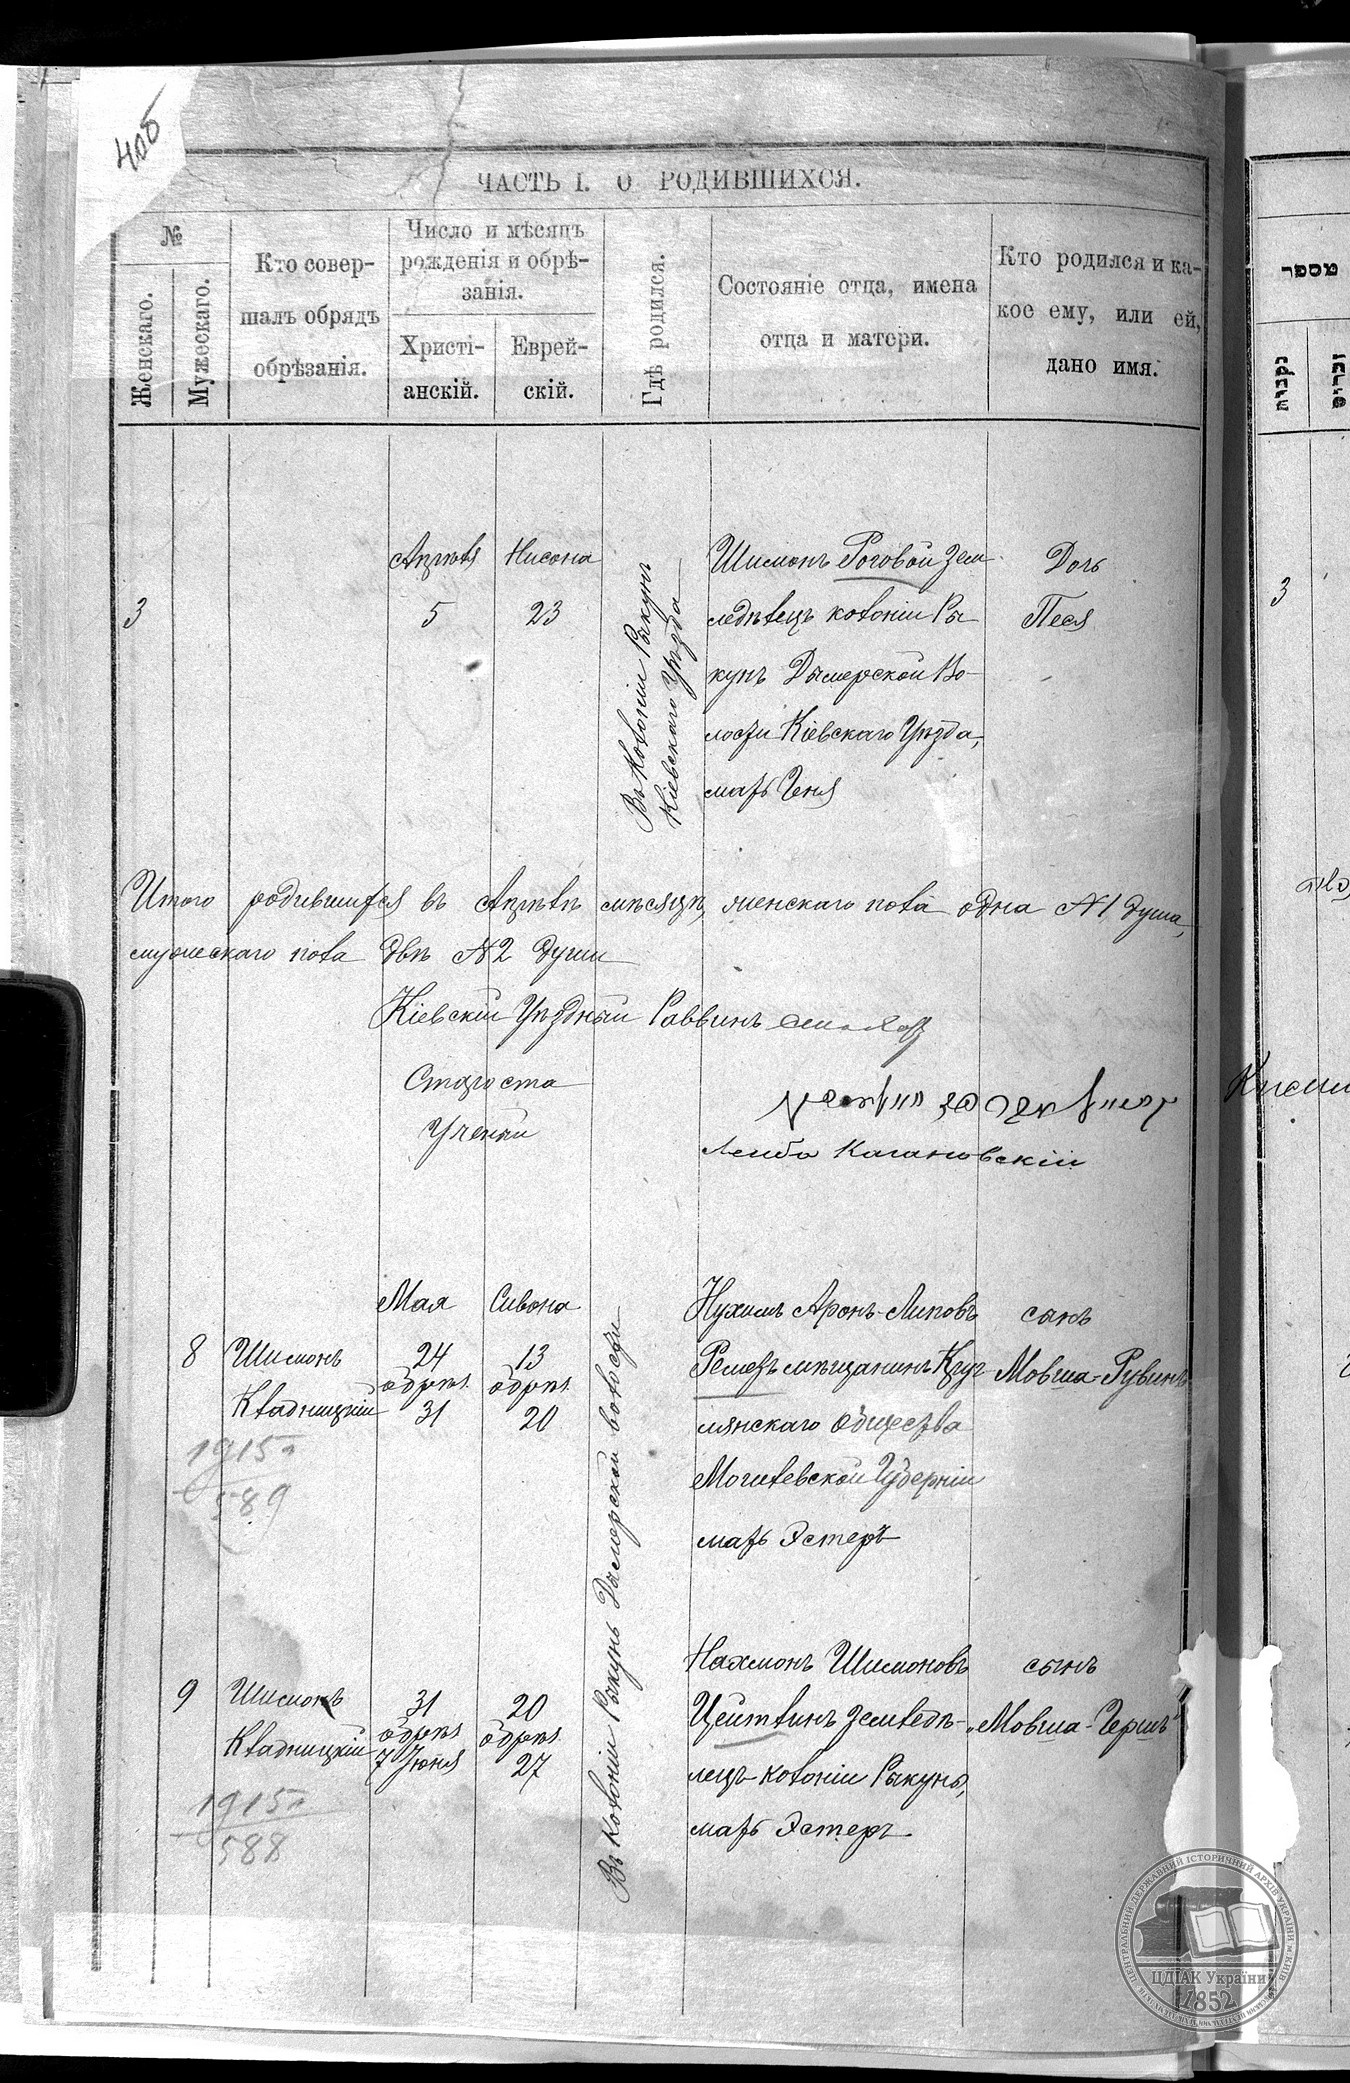 406
ЧАСТЬ I. О РОДИВШИХСЯ.
№
Женскаго.
Мужескаго.
Кто совер-
шалъ обрядъ
обрѣзанія.
Число и мѣсяцъ
рожденія и обрѣ-
занія.
Христі-
анскій.
Еврей-
скій.
Гдѣ родился.
Состояніе отца, имена
отца и матери.
Кто родился и ка-
кое ему, или ей,
дано имя.
3
Апрѣля
5
Нисона
23
Въ Колоніи Рыкунь
Кіевскаго Уѣзда
Шимонъ Роговой Зем
ледѣлецъ колоніи Ры
кунь Дымерской Во-
лости Кіевскаго Уѣзда,
мать Геня
Дочь
Песя
Итого родившихся въ Апрѣлѣ мѣсяцѣ, женскаго пола одна №1 душа,
мужескаго пола двѣ №2 души
Кіевскій Уѣздный Раввинъ
Староста
Ученый
Лейба Кагановскій
8
Шимонъ
Кладницкій
1915
589
Мая
24
обрѣз.
31
Сивона
13
обрѣз.
20
Въ Колоніи Рыкунь Дымерской волости
Нухимъ Аронъ-Липовъ
Ремезъ мѣщанинъ Круг
лянскаго Общества
Могилевской Губерніи
мать Эстеръ
сынъ
Мовша-Рувинъ
9
Шимонъ
Кладницкій
1915
588
31
обрѣз
7 Іюня
20
обрѣз.
27
Нахмонъ Шимоновъ
Цейтлинъ земледѣ-
лецъ колоніи Рыкунь,
мать Эстеръ
сынъ
„Мовша-Гершъ"
מספר
נקבות
זכרים
3
ЦЕНТРАЛЬНИЙ ДЕРЖАВНИЙ ІСТОРИЧНИЙ АРХІВ УКРАЇНИ м. КИЇВ
ЦДІАК України
1852